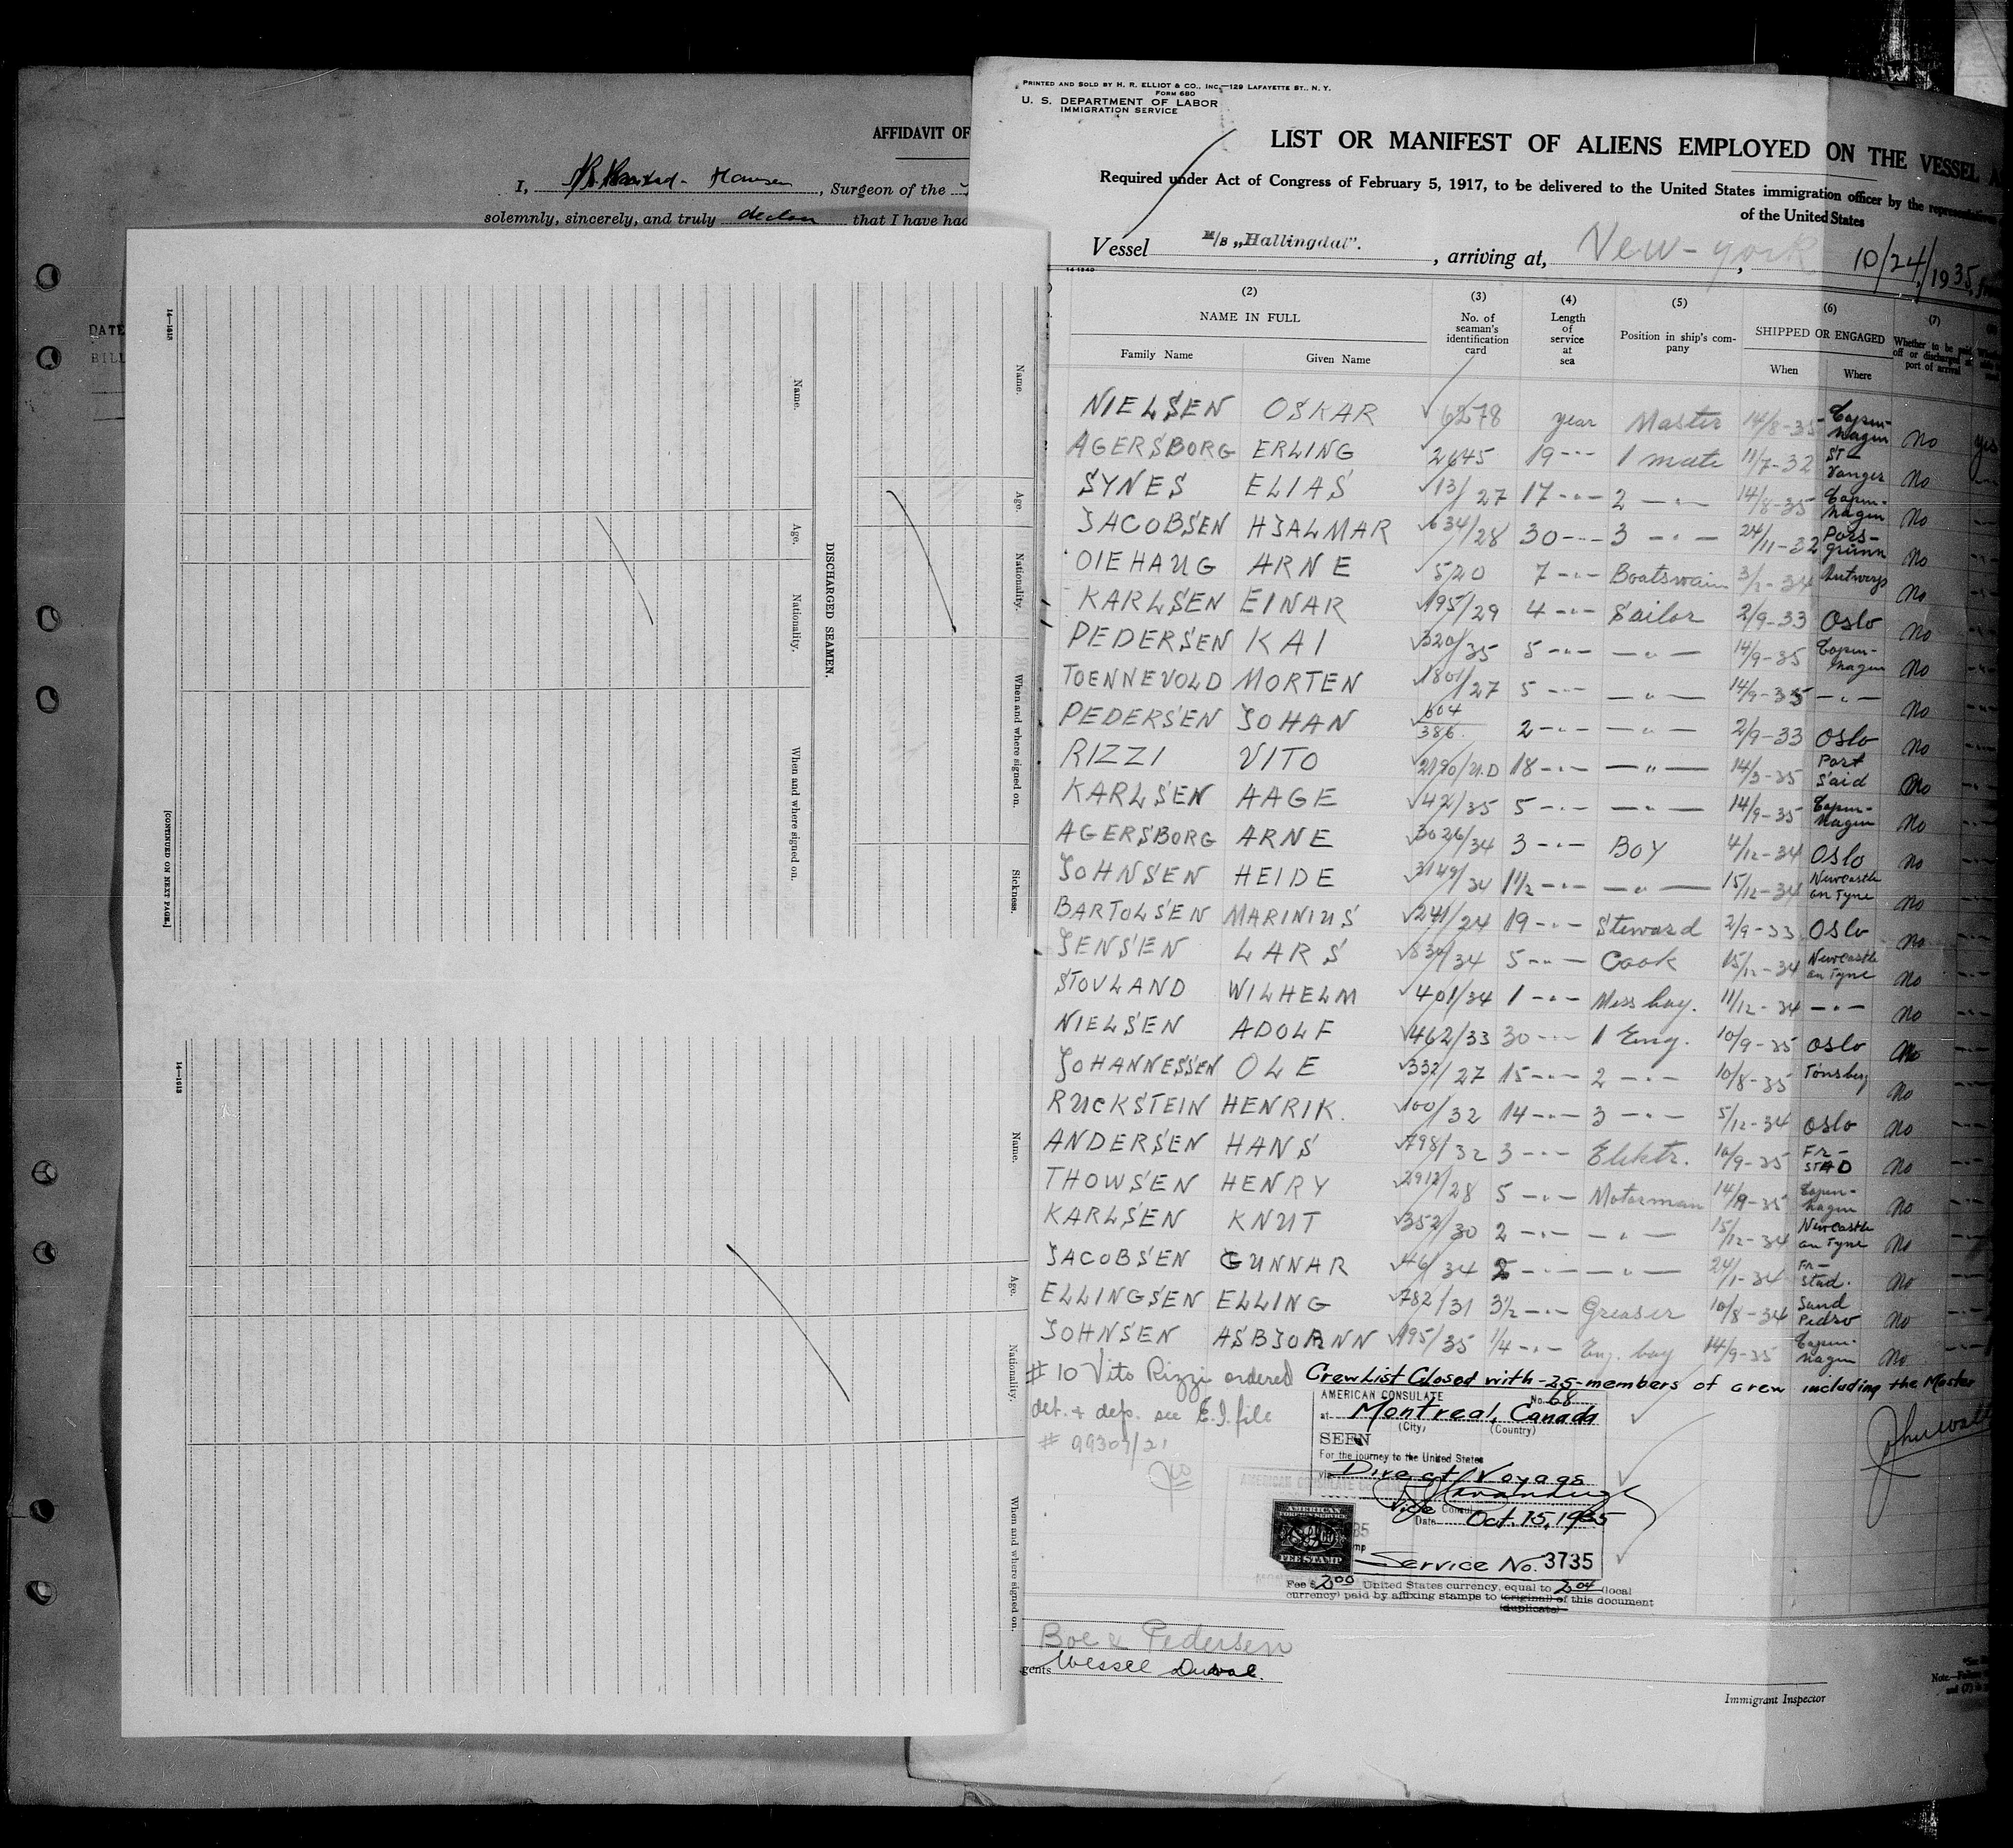 DATE
BILL
AFFIDAVIT OF
I, Hansen, Surgeon of the
solemnly, sincerely, and truly declare that I have had
14—1613
Name.
Age.
Nationality.
When and where signed on.
[CONTINUED ON NEXT PAGE.]
DISCHARGED SEAMEN.
Name.
Age.
Nationality.
When and where signed on.
Sickness.
14—1613
Name.
Age.
Nationality.
When and where signed on.
PRINTED AND SOLD BY H. R. ELLIOT & CO., INC.—129 LAFAYETTE ST., N. Y.
FORM 680
U. S. DEPARTMENT OF LABOR
IMMIGRATION SERVICE
LIST OR MANIFEST OF ALIENS EMPLOYED ON THE VESSEL
Required under Act of Congress of February 5, 1917, to be delivered to the United States immigration officer by the representative
of the United States
Vessel M/S „Hallingdal". , arriving at, New-york , 10/24/1935,
14 1240
(2) (3) (4) (5) (6) (7)
NAME IN FULL No. of seaman's identification card Length of service at sea Position in ship's company SHIPPED OR ENGAGED Whether to be paid off or discharged at port of arrival
Family Name Given Name When Where
NIELSEN OSKAR 6278 year Master 14/8-35 Copenhagen No yes
AGERSBORG ERLING 2645 19 -"- 1 mate 11/7-32 ST-Vanger No -"-
SYNES ELIAS 13/27 17 -"- 2 -"- 14/8-35 Copenhagen No -"-
JACOBSEN HJALMAR 634/28 30 -"- 3 -"- 24/11-32 Porsgrunn No -"-
OIEHAUG ARNE 520 7 -"- Boatswain 3/2-34 Antwerp No -"-
KARLSEN EINAR 195/29 4 -"- Sailor 2/9-33 Oslo No -"-
PEDERSEN KAI 320/35 5 -"- -"- 14/9-35 Copenhagen No -"-
TOENNEVOLD MORTEN 1801/27 5 -"- -"- 14/9-35 -"- No -"-
PEDERSEN JOHAN 604/386 2 -"- -"- 2/9-33 Oslo No -"-
RIZZI VITO 2190/U.D 18 -"- -"- 14/3-35 Port Said No -"-
KARLSEN AAGE 42/35 5 -"- -"- 14/9-35 Copenhagen No -"-
AGERSBORG ARNE 3026/34 3 -"- BOY 4/12-34 Oslo No -"-
JOHNSEN HEIDE 3149/34 1½ -"- -"- 15/12-34 Newcastle on Tyne No -"-
BARTOLSEN MARINIUS 241/24 19 -"- Steward 2/9-33 Oslo No -"-
JENSEN LARS 834/34 5 -"- Cook 15/12-34 Newcastle on Tyne No -"-
STOVLAND WILHELM 401/34 1 -"- Mess boy. 11/12-34 -"- No -"-
NIELSEN ADOLF 462/33 30 -"- 1 Eng. 10/9-35 Oslo No -"-
JOHANNESSEN OLE 332/27 15 -"- 2 -"- 10/8-35 Tönsberg No -"-
RUCKSTEIN HENRIK. 100/32 14 -"- 3 -"- 5/12-34 Oslo No -"-
ANDERSEN HANS 798/32 3 -"- Elektr. 10/9-35 Fr-STAD No -"-
THOWSEN HENRY 2912/28 5 -"- Motorman 14/9-35 Copenhagen No -"-
KARLSEN KNUT 352/30 2 -"- -"- 15/12-34 Newcastle on Tyne No
JACOBSEN GUNNAR 46/34 -"- -"- 24/1-34 Fr-stad. No
ELLINGSEN ELLING 782/31 3½ -"- Greaser 10/8-34 Sand Pedro No -"-
JOHNSEN ASBJORNN 195/35 1/4 -"- Eng. boy 14/9-35 Copenhagen No
# 10 Vito Rizzi ordered
det. + dep. see E.I. file
# 99307/21
Crew List Closed with -25- members of crew including the Master
AMERICAN CONSULATE No. 68
at Montreal, Canada
(City) (Country)
SEEN
For the journey to the United States
via Direct Voyage
Vice Consul
Date Oct. 15, 1935
AMERICAN FOREIGN SERVICE
FEE STAMP
Service No. 3735
Fee $2.00 United States currency, equal to 2.04 (local
currency) paid by affixing stamps to (original) of this document
(duplicate)
Boe & Pedersen
gents Wessel Duval.
Immigrant Inspector